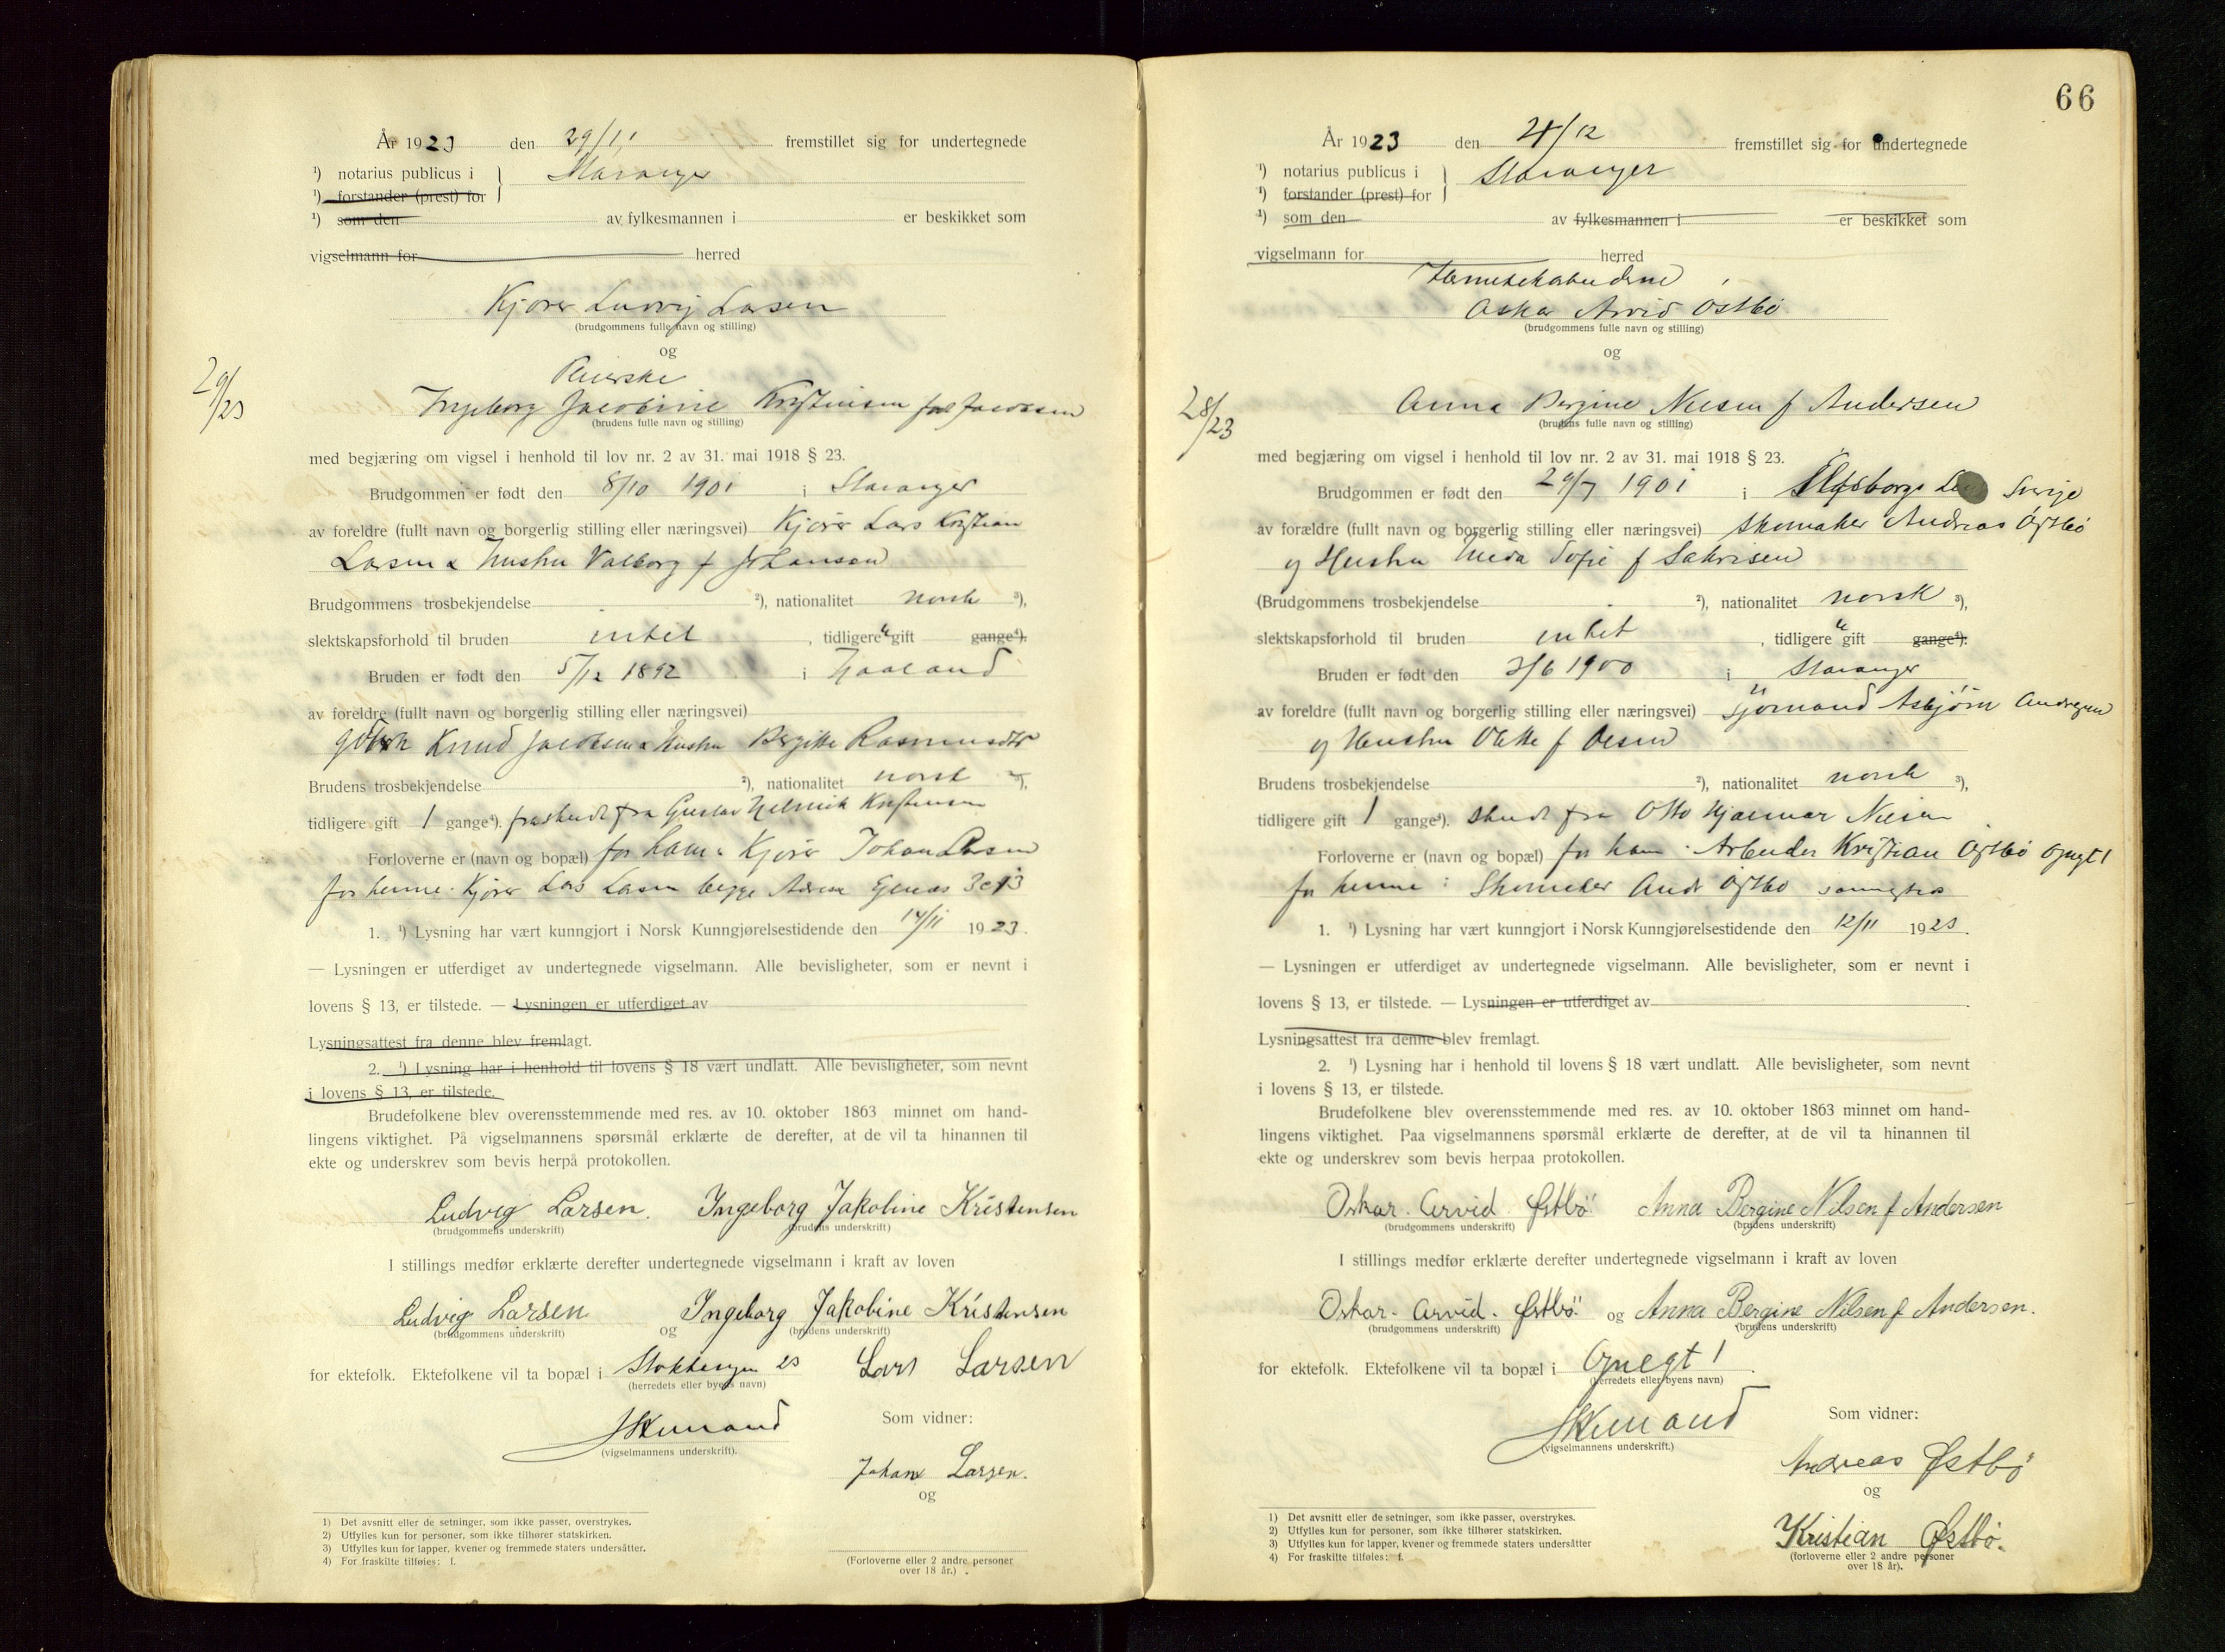 År 1923 den 29/11 fremstillet sig for undertegnede
¹) notarius publicus i Stavanger
¹) forstander (prest) for
¹) som den av fylkesmannen i er beskikket som
vigselmann for herred
Kjører Ludvig Larsen
(brudgommens fulle navn og stilling)
og
29/23
Ingeborg Jacobine Kristensen Jacobsen
(brudens fulle navn og stilling)
med begjæring om vigsel i henhold til lov nr. 2 av 31. mai 1918 § 23.
Brudgommen er født den 8/10 1901 i Stavanger
av foreldre (fullt navn og borgerlig stilling eller næringsvei) Kjører Lars Kristian
Larsen & Hustru Valborg f Johansen
Brudgommens trosbekjendelse ²), nationalitet norsk ³),
slektskapsforhold til bruden intet, tidligere gift gange⁴).
Bruden er født den 5/12 1892 i Haaland
av foreldre (fullt navn og borgerlig stilling eller næringsvei)
Knud Jacobsen & Hustru Bergitte Rasmusdtr
Brudens trosbekjendelse ²), nationalitet norsk ³),
tidligere gift 1 gange⁴). fraskilt fra Gustav Kristensen
Forloverne er (navn og bopæl) for ham: Kjører Johan Larsen
for henne: Kjører Lars Larsen begge
1. ¹) Lysning har vært kunngjort i Norsk Kunngjørelsestidende den 14/11 1923.
— Lysningen er utferdiget av undertegnede vigselmann. Alle bevisligheter, som er nevnt i
lovens § 13, er tilstede. — Lysningen er utferdiget av
Lysningsattest fra denne blev fremlagt.
2. ¹) Lysning har i henhold til lovens § 18 vært undlatt. Alle bevisligheter, som nevnt
i lovens § 13, er tilstede.
Brudefolkene blev overensstemmende med res. av 10. oktober 1863 minnet om hand-
lingens viktighet. På vigselmannens spørsmål erklærte de derefter, at de vil ta hinannen til
ekte og underskrev som bevis herpå protokollen.
Ludvig Larsen. Ingeborg Jakobine Kristensen
(brudgommens underskrift) (brudens underskrift)
I stillings medfør erklærte derefter undertegnede vigselmann i kraft av loven
Ludvig Larsen og Ingeborg Jakobine Kristensen
(brudgommens underskrift) (brudens underskrift)
for ektefolk. Ektefolkene vil ta bopæl i Lars Larsen
(herredets eller byens navn)
Som vidner:
(vigselmannens underskrift).
Johan Larsen.
og
1) Det avsnitt eller de setninger, som ikke passer, overstrykes.
2) Utfylles kun for personer, som ikke tilhører statskirken.
3) Utfylles kun for lapper, kvener og fremmede staters undersåtter.
4) For fraskilte tilføies: f.
(Forloverne eller 2 andre personer
over 18 år.)
66
År 1923 den fremstillet sig for undertegnede
¹) notarius publicus i Stavanger
¹) forstander (prest) for
¹) som den av fylkesmannen i er beskikket som
vigselmann for herred
Oskar Arvid Östbö
(brudgommens fulle navn og stilling)
og
28/23
Anna Bergine Nilsen f Andersen
(brudens fulle navn og stilling)
med begjæring om vigsel i henhold til lov nr. 2 av 31. mai 1918 § 23.
Brudgommen er født den 29/7 1901 i Elfsborgs Sverige
av forældre (fullt navn og borgerlig stilling eller næringsvei) Skomaker Andreas Östbö
og Hustru Sofie f Sakrisen
(Brudgommens trosbekjendelse ²), nationalitet norsk ³),
slektskapsforhold til bruden intet, tidligere gift gange⁴).
Bruden er født den 3/6 1900 i Stavanger
av foreldre (fullt navn og borgerlig stilling eller næringsvei) Sjömand Asbjörn Andersen
og Hustru f Olsen
Brudens trosbekjendelse ²), nationalitet norsk ³),
tidligere gift 1 gange⁴). skilt fra Otto Hjalmar Nilsen
Forloverne er (navn og bopæl) for ham: Arbeider Kristian Östbö
for henne: Skomaker Andr Östbö
1. ¹) Lysning har vært kunngjort i Norsk Kunngjørelsestidende den 12/11 1923.
— Lysningen er utferdiget av undertegnede vigselmann. Alle bevisligheter, som er nevnt i
lovens § 13, er tilstede. — Lysningen er utferdiget av
Lysningsattest fra denne blev fremlagt.
2. ¹) Lysning har i henhold til lovens § 18 vært undlatt. Alle bevisligheter, som nevnt
i lovens § 13, er tilstede.
Brudefolkene blev overensstemmende med res. av 10. oktober 1863 minnet om hand-
lingens viktighet. Paa vigselmannens spørsmål erklærte de derefter, at de vil ta hinannen til
ekte og underskrev som bevis herpaa protokollen.
Oskar. Arvid. Østbö Anna Bergine Nilsen f Andersen
(brudgommens underskrift) (brudens underskrift)
I stillings medfør erklærte derefter undertegnede vigselmann i kraft av loven
Oskar. Arvid. Østbö og Anna Bergine Nilsen f Andersen.
(brudgommens underskrift) (brudens underskrift)
for ektefolk. Ektefolkene vil ta bopæl i
(herredets eller byens navn)
Som vidner:
(vigselmannens underskrift.)
Andreas Østbö
og
Kristian Østbö.
(forloverne eller 2 andre personer
over 18 år).
1) Det avsnitt eller de setninger, som ikke passer, overstrykes.
2) Utfylles kun for personer, som ikke tilhører statskirken.
3) Utfylles kun for lapper, kvener og fremmede staters undersåtter
4) For fraskilte tilføies: f.